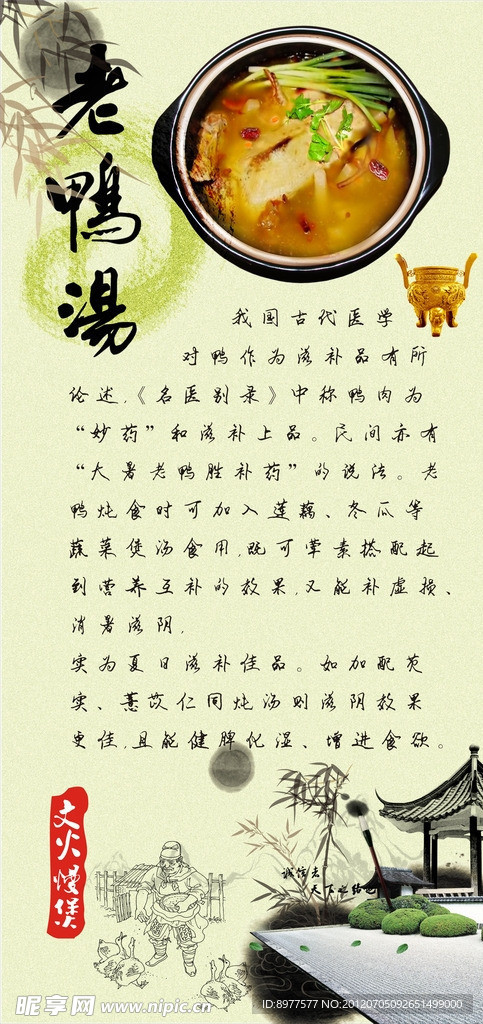 老鸭湯
我国古代医学
对鸭作为滋补品有所
论述,《名医别录》中称鸭肉为
“妙药”和滋补上品。民间亦有
“大暑老鸭胜补药”的说法。老
鸭炖食时可加入莲藕、冬瓜等
蔬菜煲汤食用,既可荤素搭配起
到营养互补的效果,又能补虚损、
消暑滋阴,
实为夏日滋补佳品。如加配芡
实、薏苡仁同炖汤则滋阴效果
更佳,且能健脾化湿、增进食欲。
文火慢煲
诚信走
天下
昵享网 www.nipic.cn
ID:8977577 NO:20120705092651499000